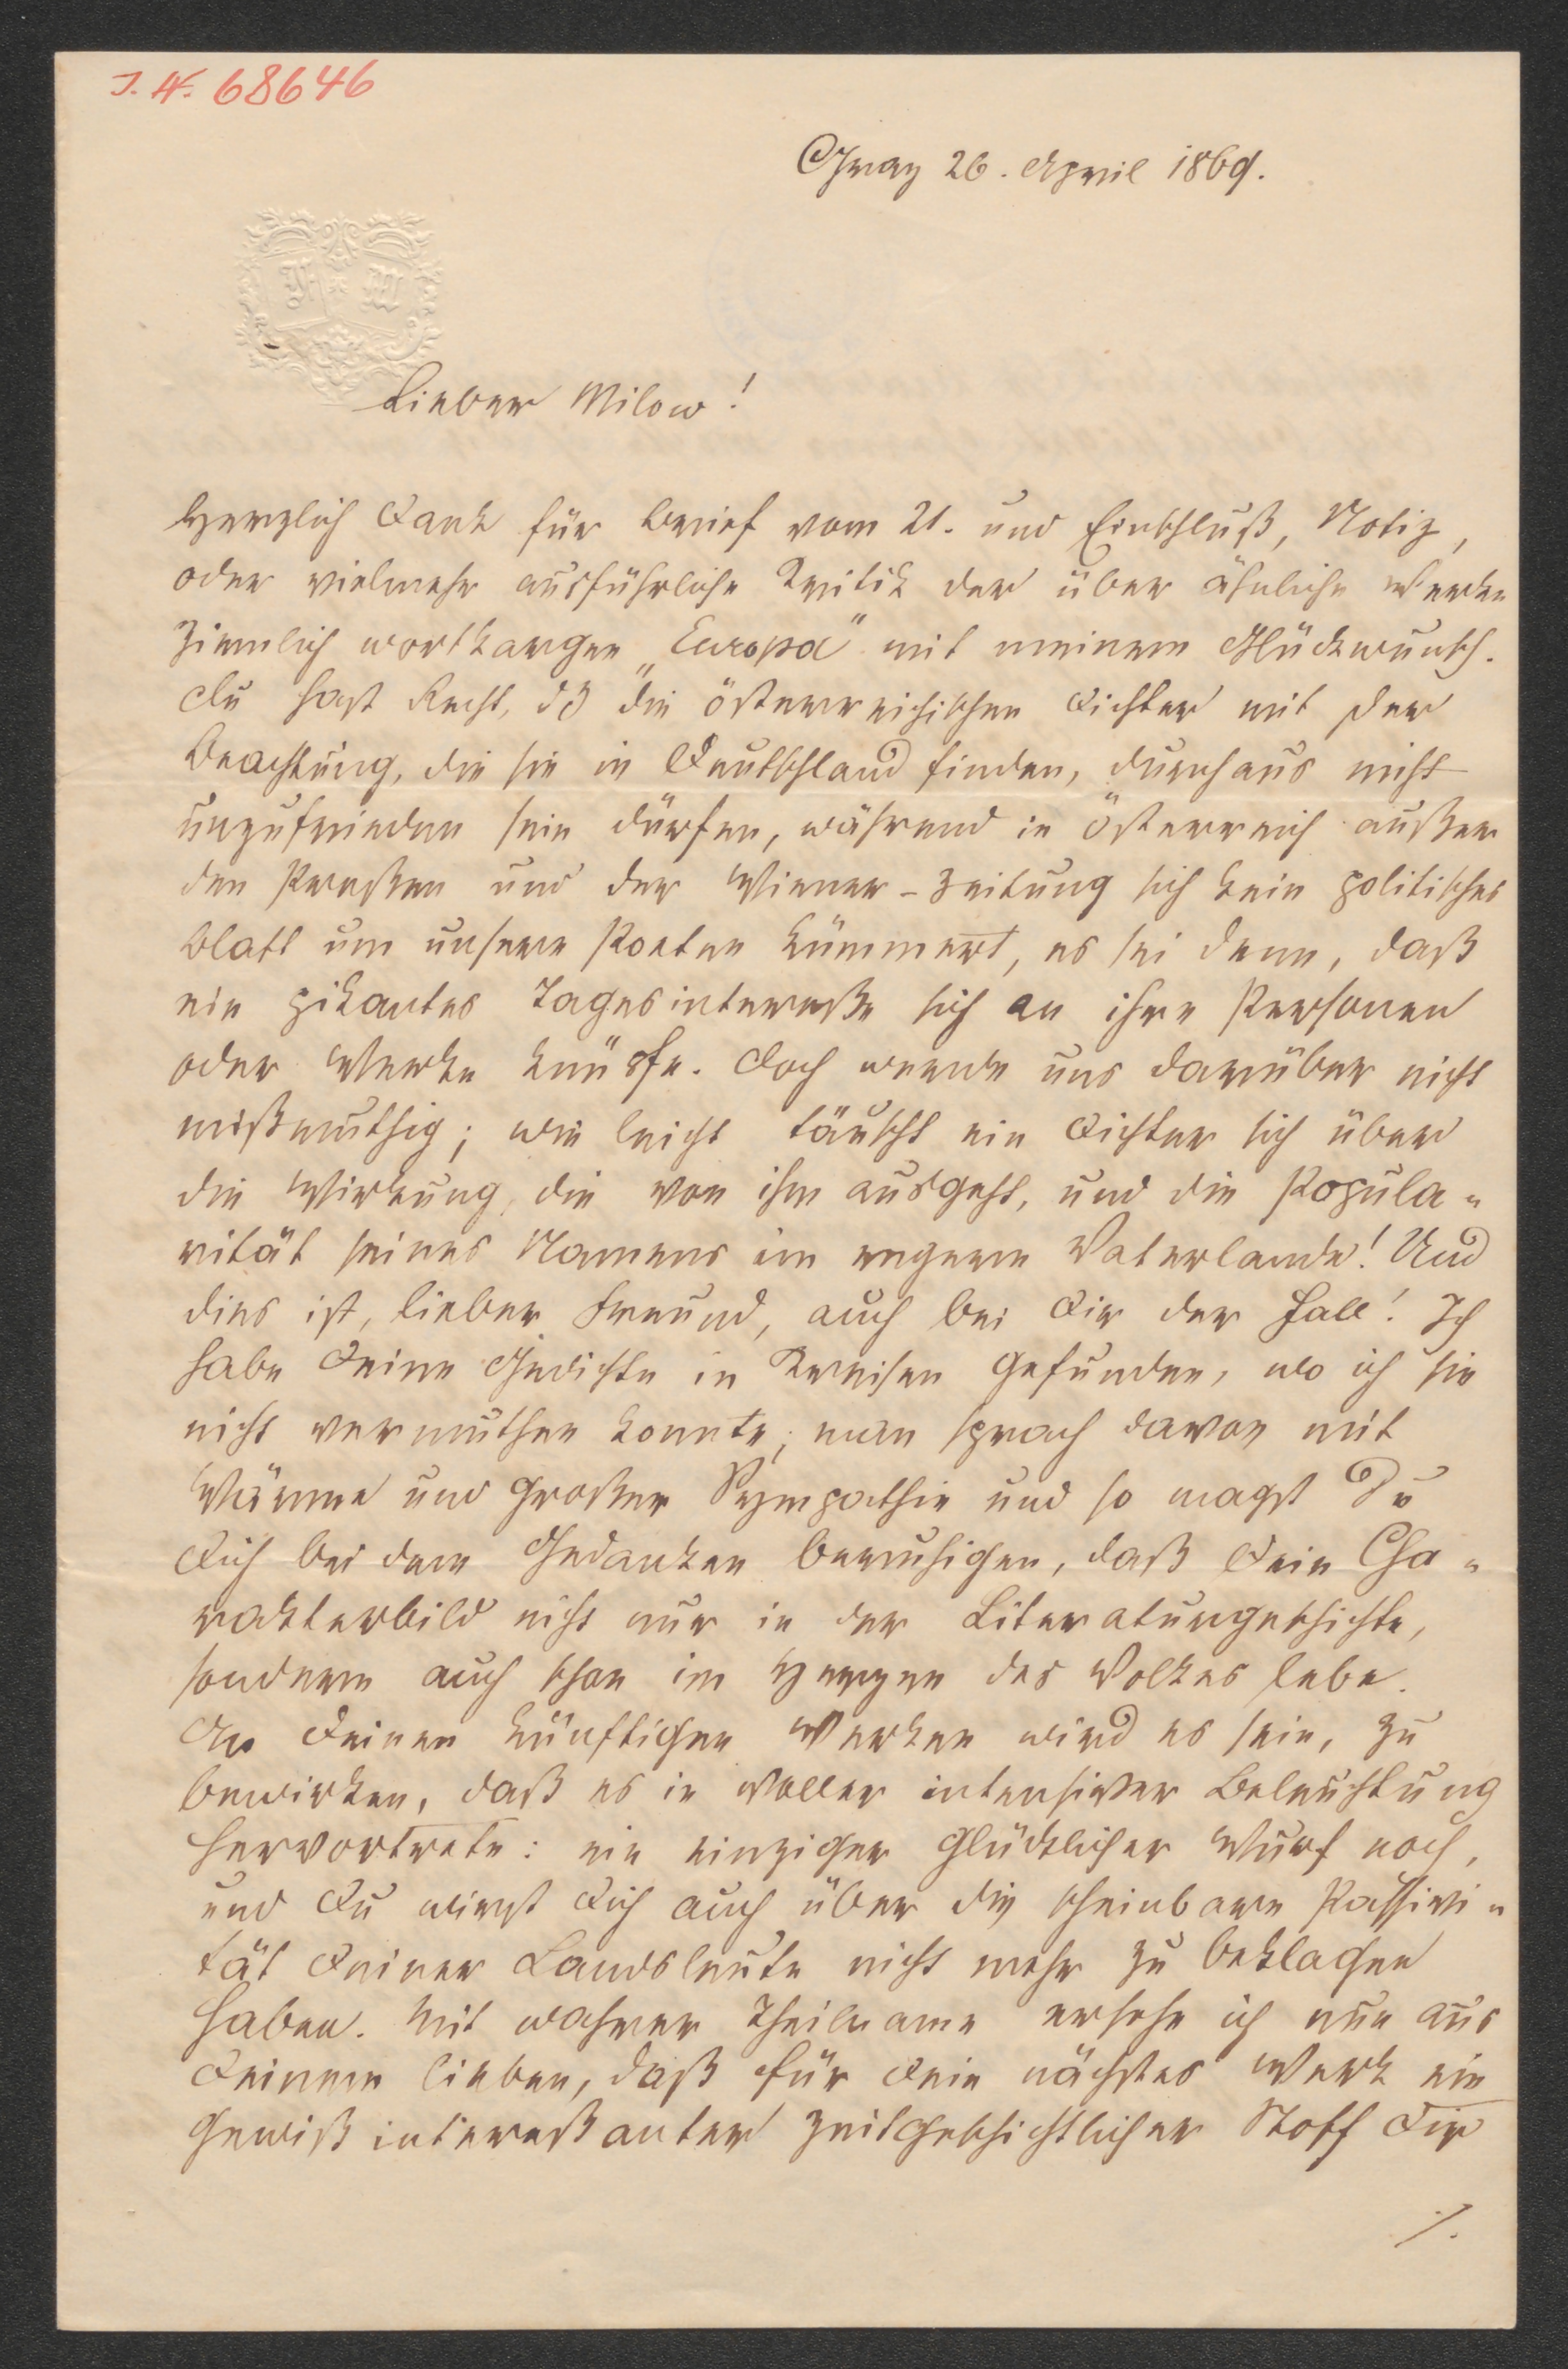 I. N. 68646
Graz 26. April 1869.
Lieber Milow!
Herzlich Dank für Brief vom 21. und Einschluß, Notiz,
oder vielmehr ausführliche Kritik der über ähnliche Werke
ziemlich wortkargen „Europa" mit meinem Glückwunsch.
Du hast Recht, dß die österreichischen Dichter mit der
Beachtung, die sie in Deutschland finden, durchaus nicht
unzufrieden sein dürfen, während in Österreich außer
den Pressen und der Wiener-Zeitung sich kein politisches
Blatt um unsere Poeten kümmert, es sei denn, daß
ein pikantes Tagesinteresse sich an ihre Personen
oder Werke knüpfe. Doch werde uns darüber nicht
mißmuthig; wie leicht täuscht ein Dichter sich über
die Wirkung, die von ihm ausgeht, und die Popula-
rität seines Namens im engern Vaterlande! Und
dies ist, lieber Freund, auch bei Dir der Fall! Ich
habe Deine Gedichte in Kreisen gefunden, wo ich sie
nicht vermuthen konnte; man sprach davon mit
Wärme und großer Sympathie und so magst Du
Dich bei dem Gedanken beruhigen, daß Dein Cha-
rakterbild nicht nur in der Literaturgeschichte,
sondern auch schon im Herzen des Volkes lebe.
An Deinen künftigen Werken wird es sein, zu
bewirken, daß es in voller intensiver Beleuchtung
hervortrete: ein einziger glücklicher Wurf noch,
und Du wirst Dich auch über die scheinbare Passivi-
tät Deiner Landsleute nicht mehr zu beklagen
haben. Mit wahrer Theilname ersehe ich nun aus
Deinem lieben, daß für Dein nächstes Werk ein
gewiß interessanter zeitgeschichtlicher Stoff Dir
./.